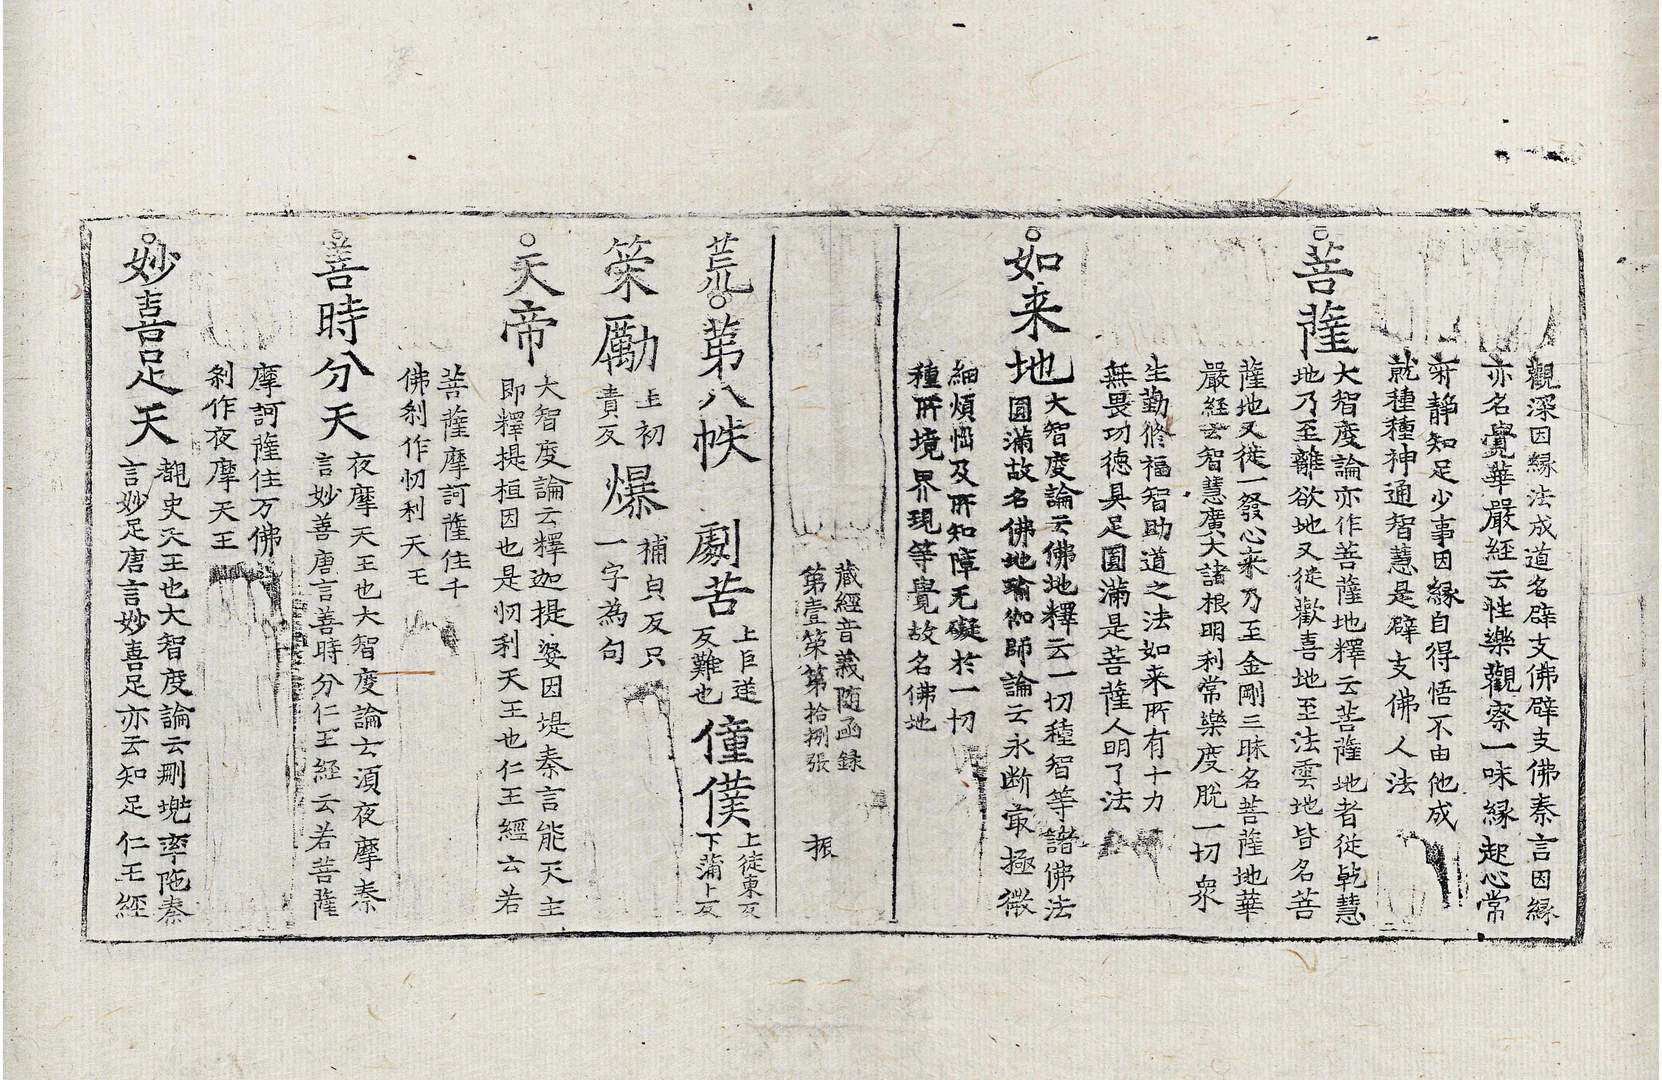 觀深因縁法成道名辟支佛辟支佛秦言因縁
亦名覺華嚴經云性樂觀察一味縁起心常
寂静知足少事因縁自得悟不由他成
就種種神通智慧是辟支佛人法
菩薩地
大智度論亦作菩薩地釋云菩薩地者從乾慧
地乃至離欲地又從歡喜地至法雲地皆名菩
薩地又從一發心来乃至金剛三昧名菩薩地華
嚴經云智慧廣大諸根明利常樂度脱一切衆
生勤修福智助道之法如来所有十力
無畏功徳具足圓滿是菩薩人明了法
如来地
大智度論云佛地釋云一切種智等諸佛法
圓滿故名佛地瑜伽師論云永断最極微
細煩惱及所知障无礙於一切
種所境界現等覺故名佛地
藏經音義随函録
第壹筞第拾捌張 振
荒八
第八帙
劇苦
上巨逆
反難也
僮僕
上徒東反
下蒲卜反
筞勵
上初
責反
爆
補貞反只
一字為句
天帝
大智度論云釋迦提婆因堤秦言能天主
即釋提桓因也是忉利天王也仁王經云若
菩薩摩訶薩住千
佛剎作忉利天王
善時分天
夜摩天王也大智度論云湏夜摩秦
言妙善唐言善時分仁王經云若菩薩
摩訶薩住万佛
剎作夜摩天王
妙喜足天
覩史天王也大智度論云刪兠率陁秦
言妙足唐言妙喜足亦云知足仁王經